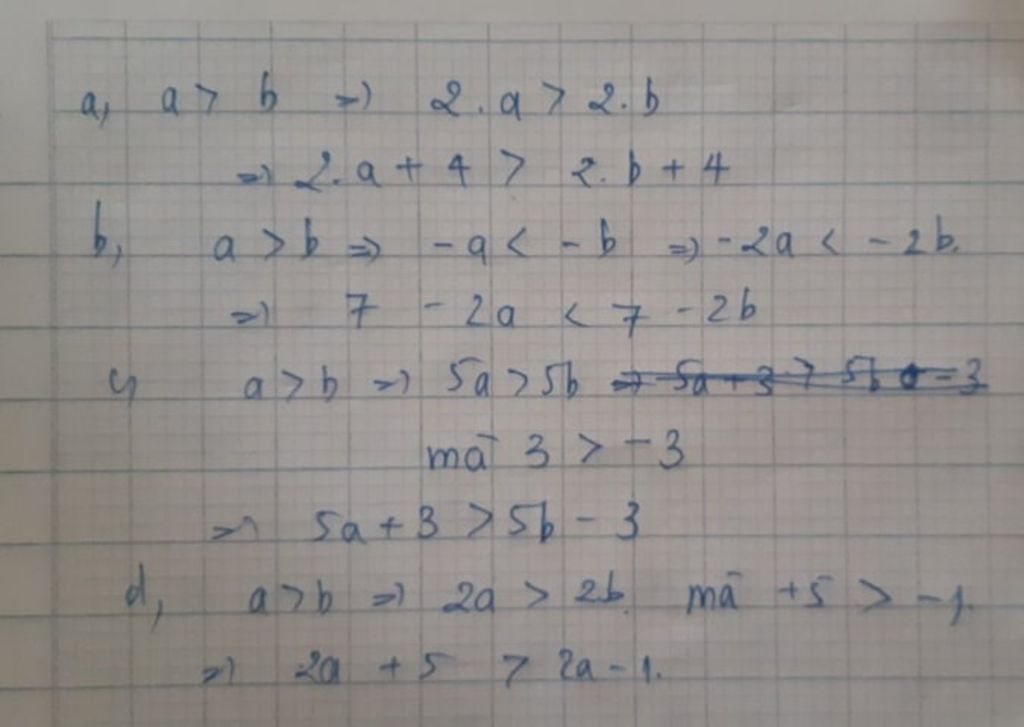 a, a > b => 2.a > 2.b
=> 2.a + 4 > 2.b + 4
b, a > b => -a < -b => -2a < -2b.
=> 7 - 2a < 7 - 2b
c, a > b => 5a > 5b => 5a + 3 > 5b - 3
mà 3 > -3
=> 5a + 3 > 5b - 3
d, a > b => 2a > 2b. mà +5 > -1.
=> 2a + 5 > 2a - 1.